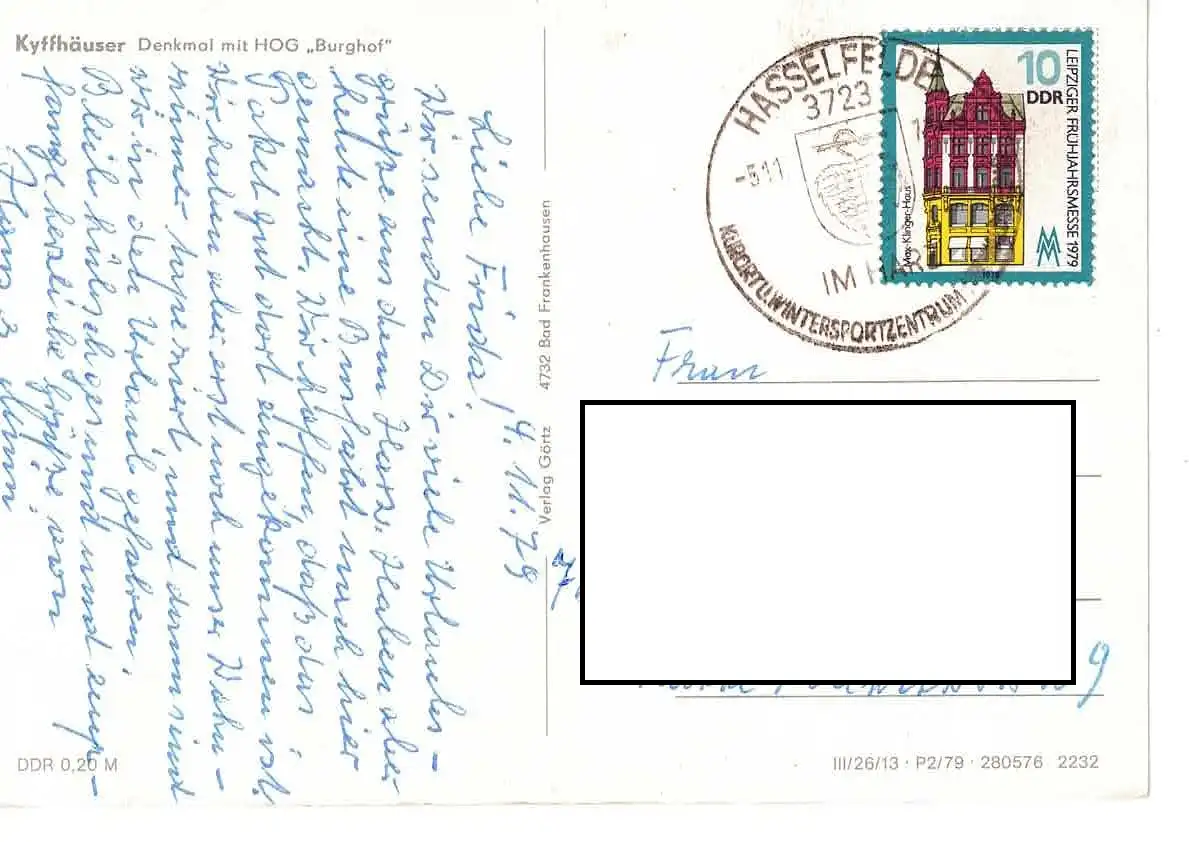 Kyffhäuser Denkmal mit HOG „Burghof“
4.11.79
Liebe Frieda!
Wir senden Dir viele Urlaubs-
grüße aus dem Harz. Haben aber
heute eine Busfahrt nach hier
gemacht. Wir hoffen, daß das
Paket gut dort angekommen ist.
Wir haben aber erst noch unser Wohn-
zimmer tapeziert und dann sind
wir in den Urlaub gefahren.
Bleib hübsch gesund und emp-
fange herzliche Grüße von
Hans &
Verlag Görtz 4732 Bad Frankenhausen
DDR 0,20 M
HASSELFELDE
3723
-5.11.
IM HARZ
KURORT U. WINTERSPORTZENTRUM
10
DDR
LEIPZIGER FRÜHJAHRSMESSE 1979
Max-Klinger-Haus
MM
1979
Frau
7
g
III/26/13 · P2/79 · 280576 2232